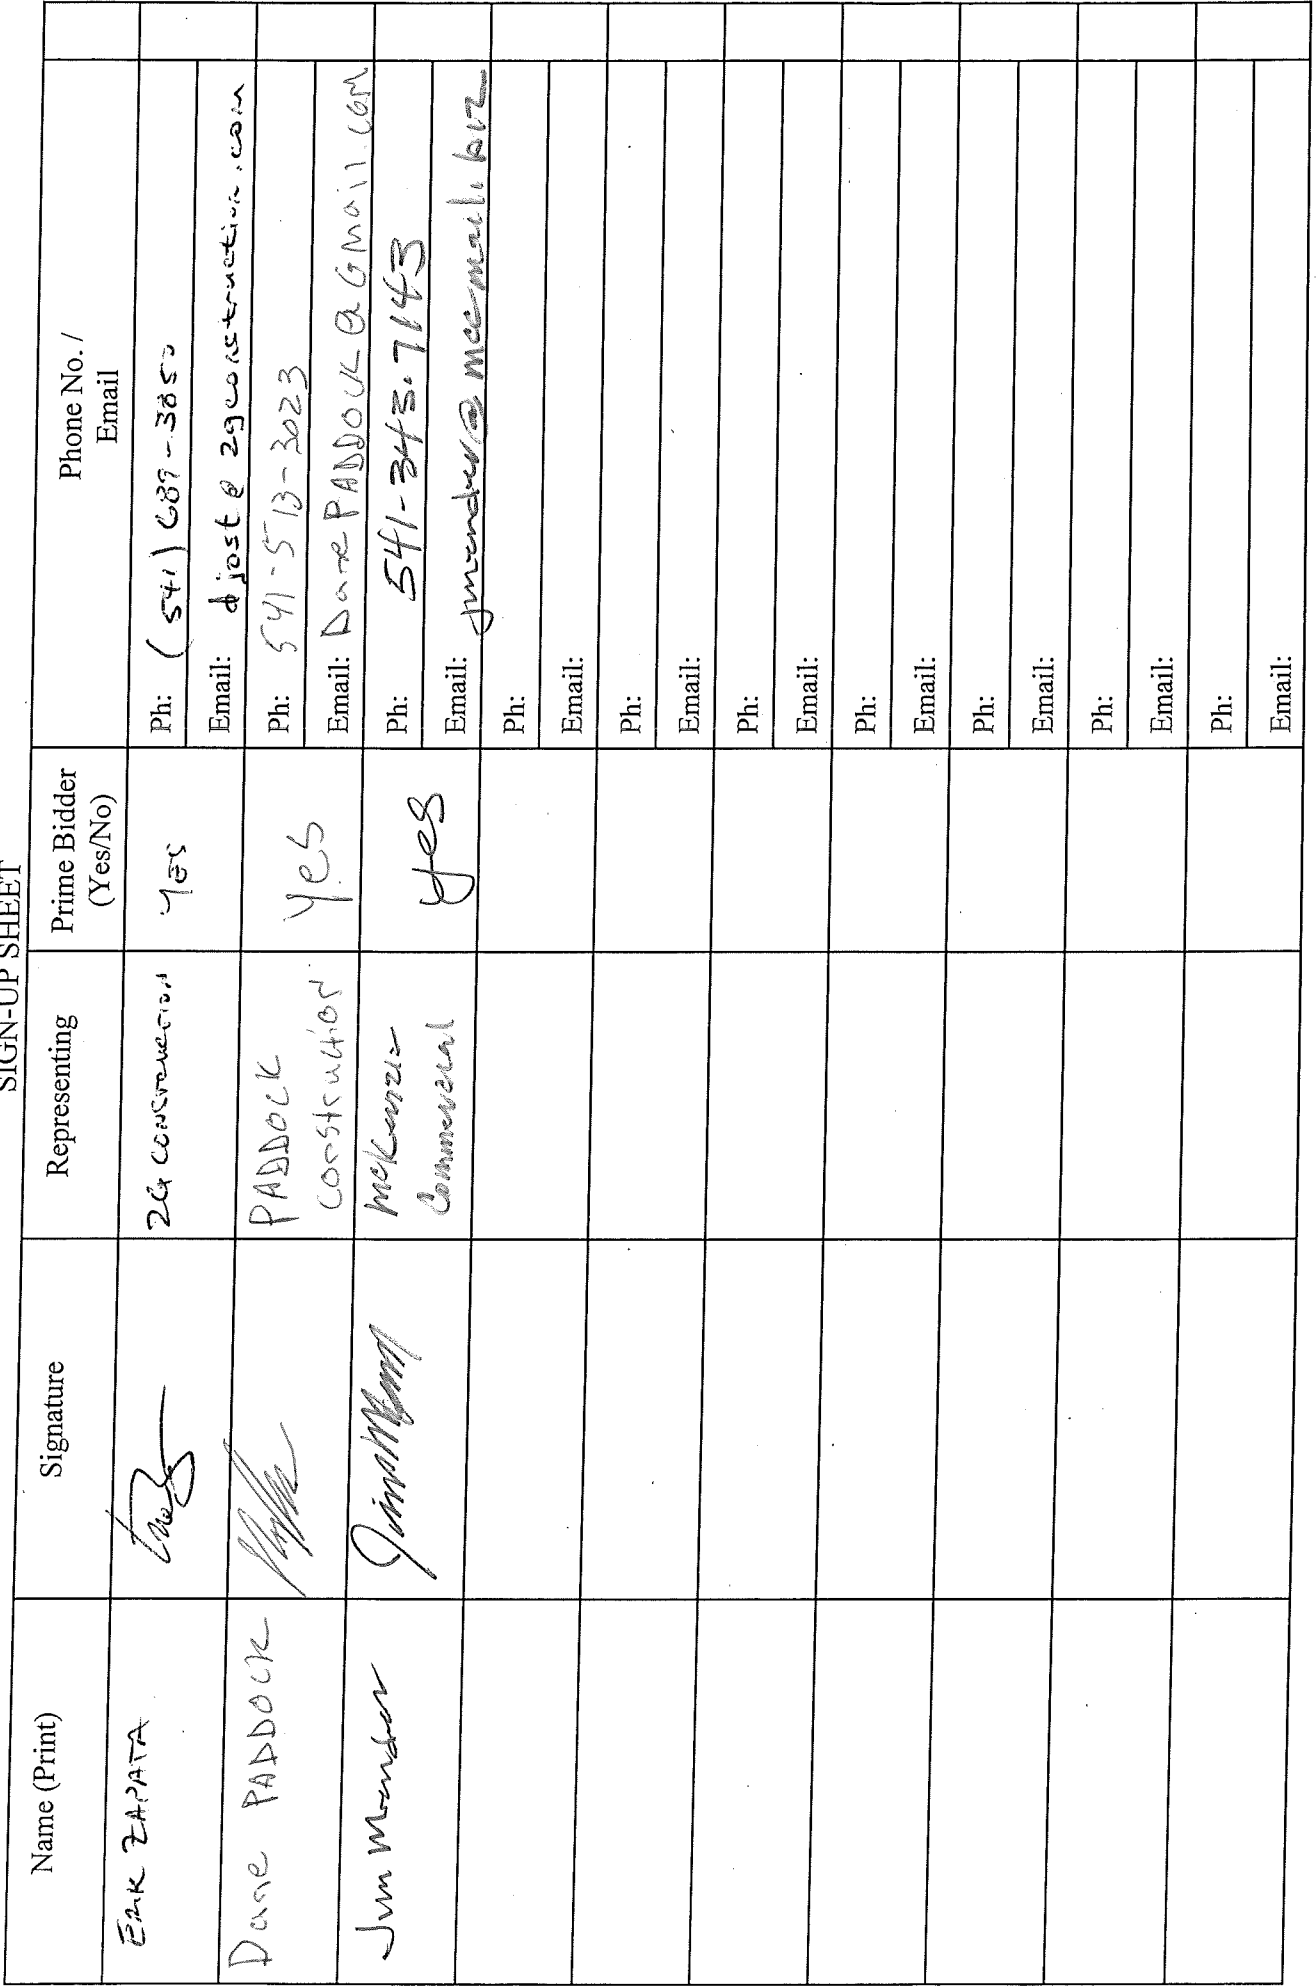 SIGN-UP SHEET
Name (Print) Signature Representing Prime Bidder (Yes/No) Phone No. / Email
ERIK ZAPATA 2G CONSTRUCTION YES Ph: (541) 689-3850
Email: djost@2gconstruction.com
Dane PADDOCK PADDOCK Construction Yes Ph: 541-513-3023
Email: DanePADDOCK@GMail.com
Jim McKenzie Commercial yes Ph: 541-343-7143
Email:
Ph:
Email:
Ph:
Email:
Ph:
Email:
Ph:
Email:
Ph:
Email:
Ph:
Email:
Ph:
Email: